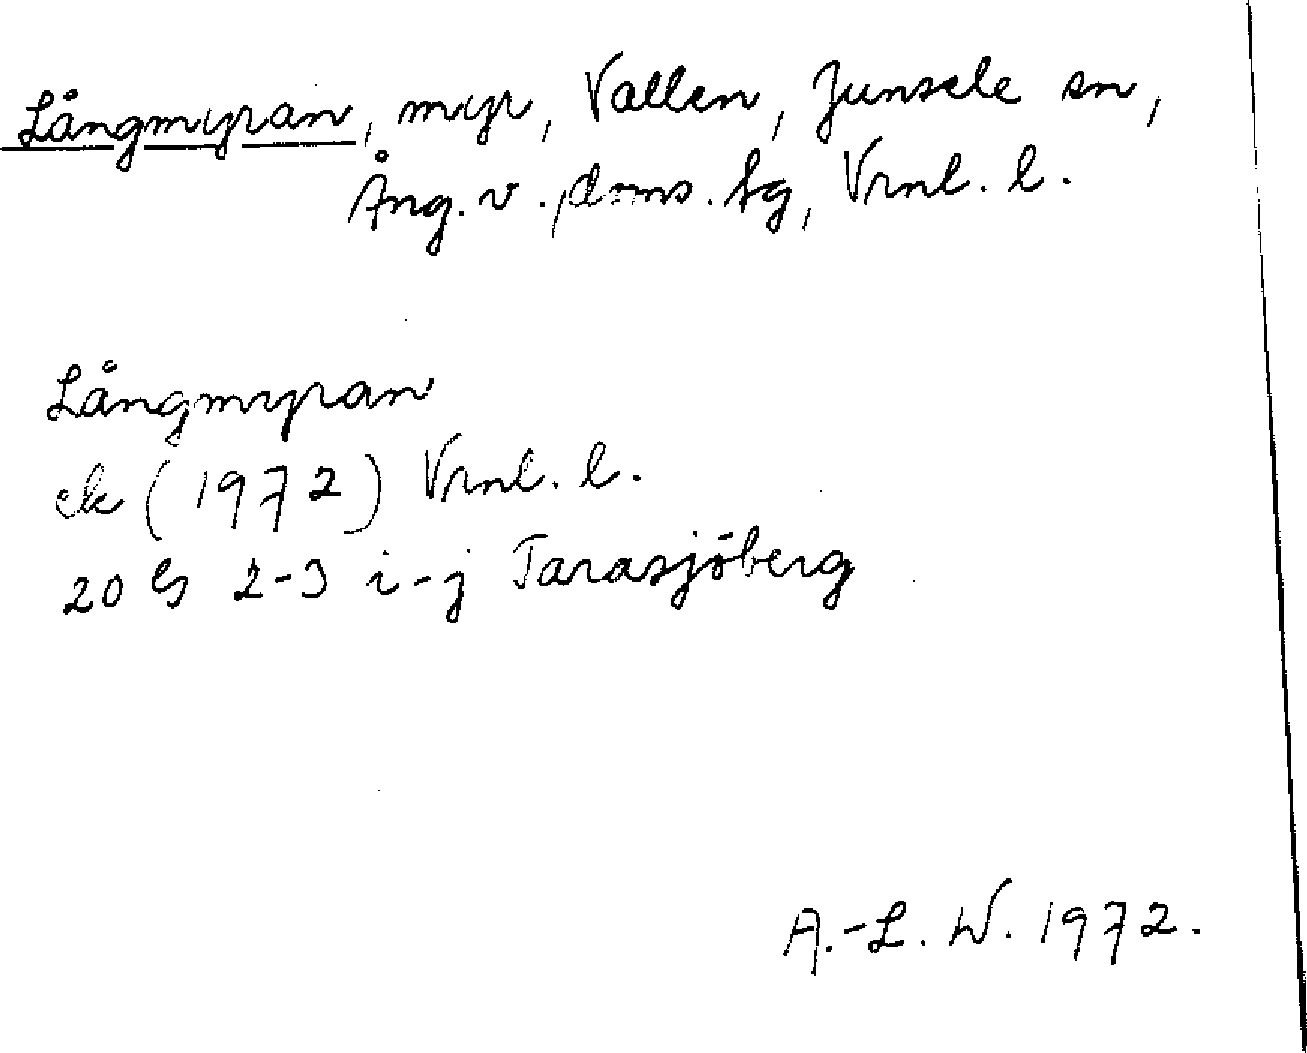 Långmyran, myr, Vallen, Junsele sn,
Ång. v. doms. tg, Vrnl. l.
Långmyran
ek (1972) Vrnl. l.
20 G 2-3 i-j Tarasjöberg
A.-L. W. 1972.